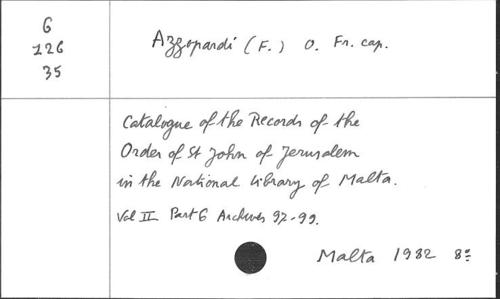 6
126
35
Azzopardi (F.) O. Fr. cap.
Catalogue of the Records of the
Order of St John of Jerusalem
in the National Library of Malta.
Vol II Part 6 Archives 97-99.
Malta 1982 8º